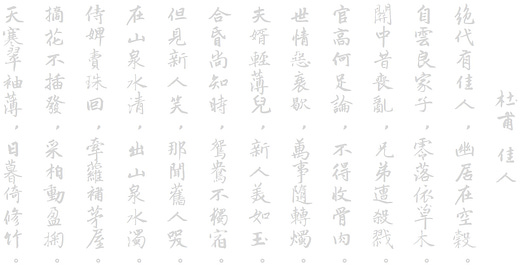 杜甫 佳人
絶代有佳人，幽居在空穀。
自雲良家子，零落依草木。
關中昔喪亂，兄弟遭殺戮。
官高何足論，不得收骨肉。
世情惡衰歇，萬事隨轉燭。
夫婿輕薄兒，新人美如玉。
合昏尚知時，鴛鴦不獨宿。
但見新人笑，那聞舊人哭。
在山泉水清，出山泉水濁。
侍婢賣珠回，牽蘿補茅屋。
摘花不插發，采柏動盈掬。
天寒翠袖薄，日暮倚修竹。